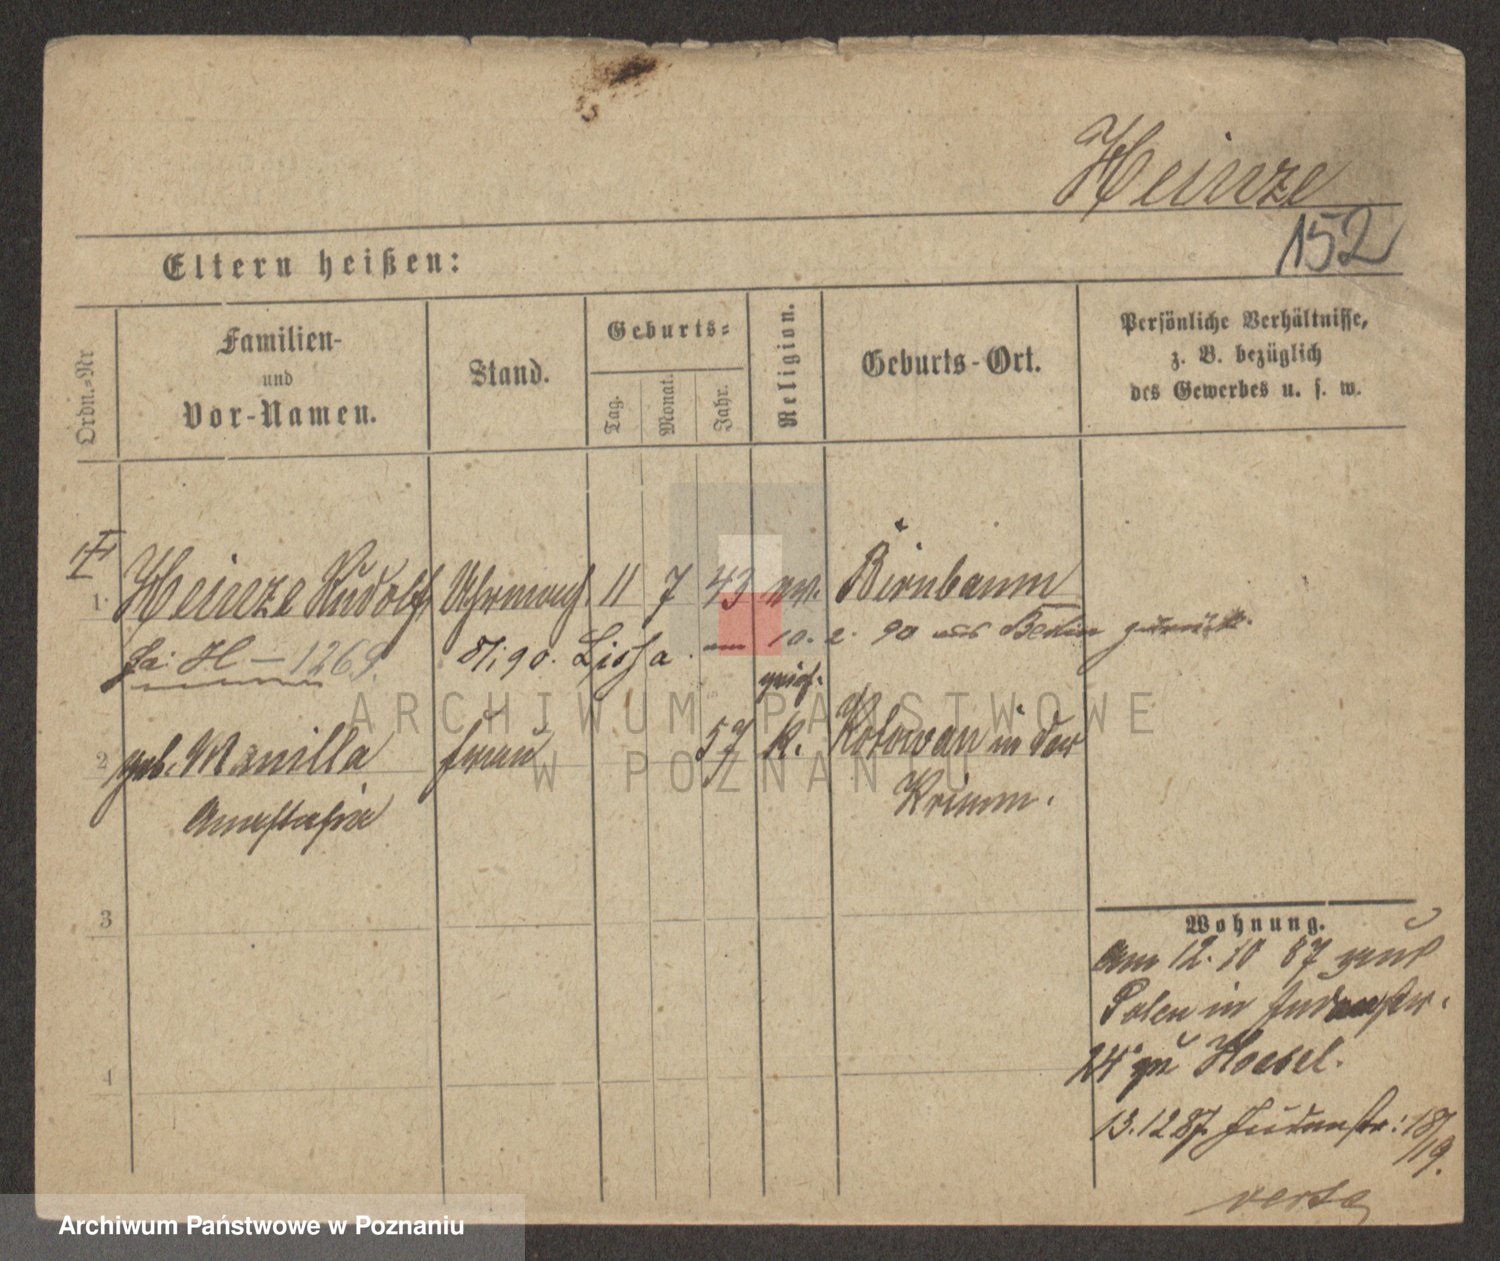 Heinze
152
Eltern heißen:
Ordn.-Nr
Familien-
und
Vor-Namen.
Stand.
Geburts-
Tag.
Monat.
Jahr.
Religion.
Geburts-Ort.
Persönliche Verhältnisse,
z. B. bezüglich
des Gewerbes u. s. w.
1. Heinze Rudolf Uhrmach. 11 7 43 ev. Birnbaum
H – 1269. 8/1 90. Lissa. am 10. 2. 90 aus Berlin zurück.
griech.
2 geb. Manilla Frau 57 K. in der
Anastasia Krimm.
3
4
Wohnung.
am 12. 10 87 aus
Polen in Judenstr.
24 zu Hoesel.
13. 12 87. Judenstr: 18/19.
verte
ARCHIWUM PAŃSTWOWE
W POZNANIU
Archiwum Państwowe w Poznaniu